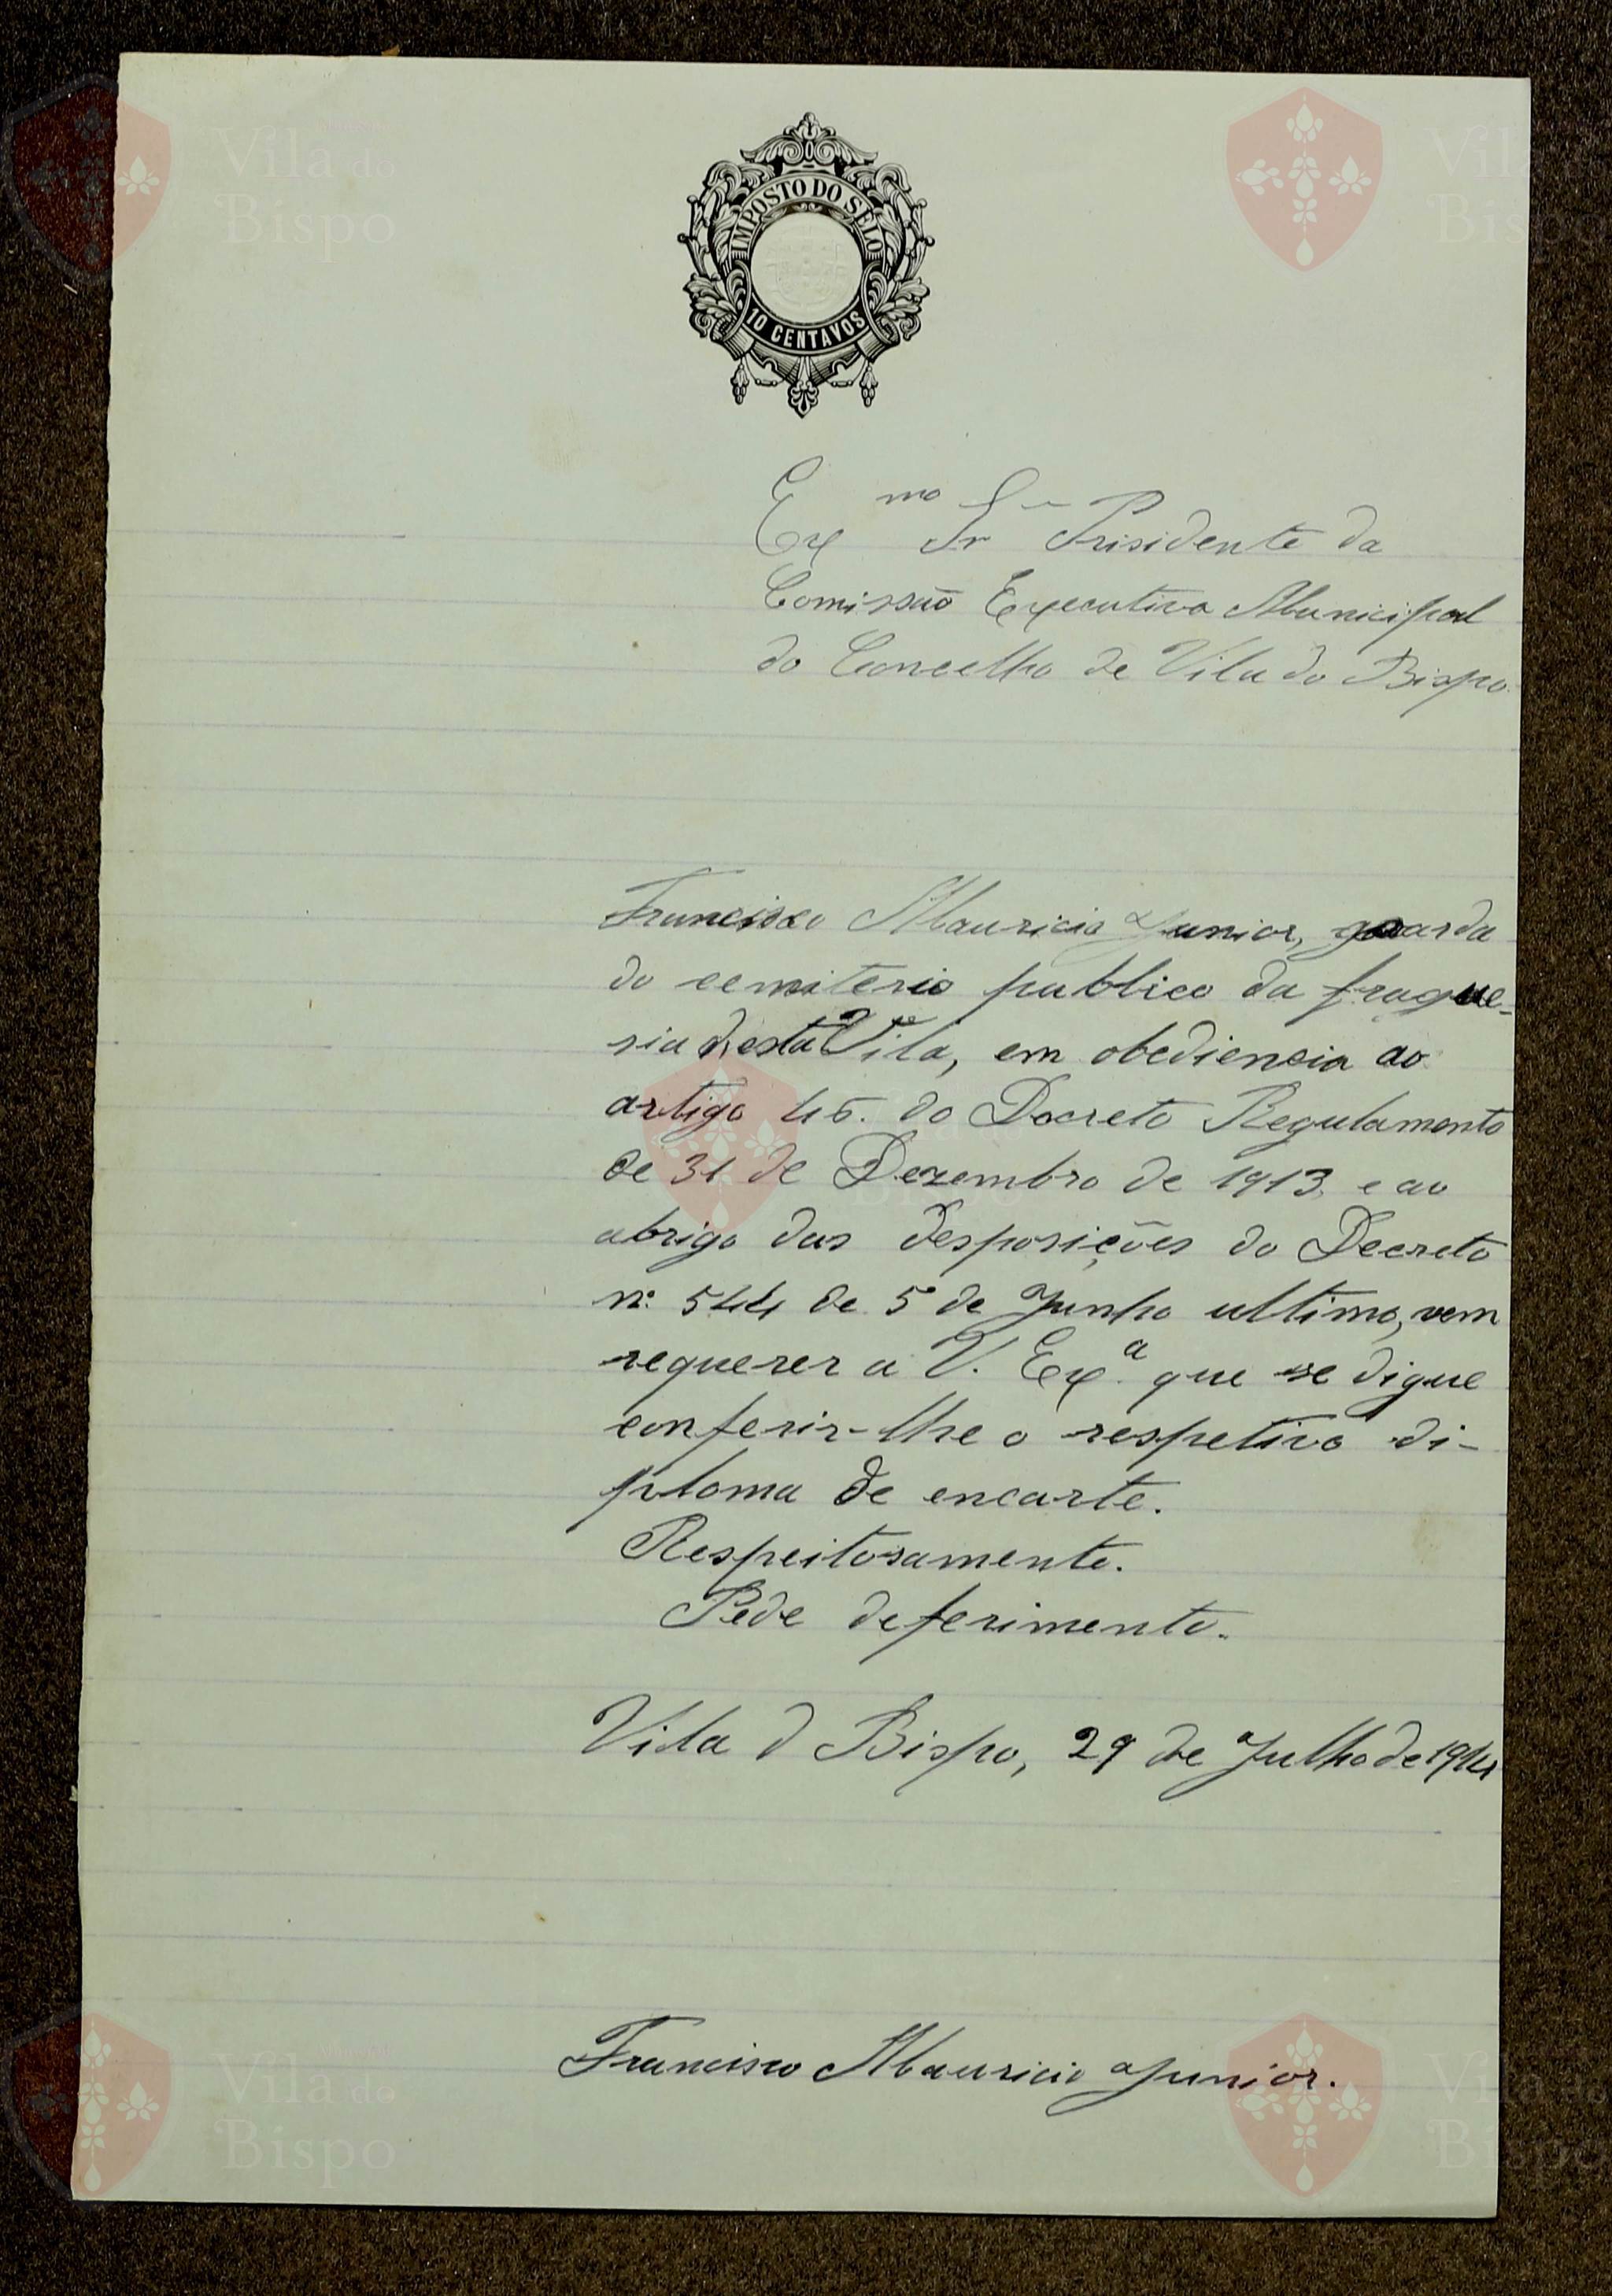 IMPOSTO DO SELO
10 CENTAVOS
Ex mo Sr Prisidente da
Comissão Executiva Municipal
do Concelho de Vila do Bispo.
Francisco Mauricio Junior, guarda
do cemiterio publico da frague-
sia desta Vila, em obediencia ao
artigo 45. do Decreto Regulamento
de 31 de Dezembro de 1913, e ao
abrigo das desposições do Decreto
nº 544 de 5 de Junho ultimo, vem
requerer a V. Exª que se digue
conferir-lhe o respetivo di-
ploma de encarte.
Respeitosamente.
Pede deferimento.
Vila d Bispo, 29 de Julho de 1914
Francisco Mauricio Junior.
Vila do
Bispo